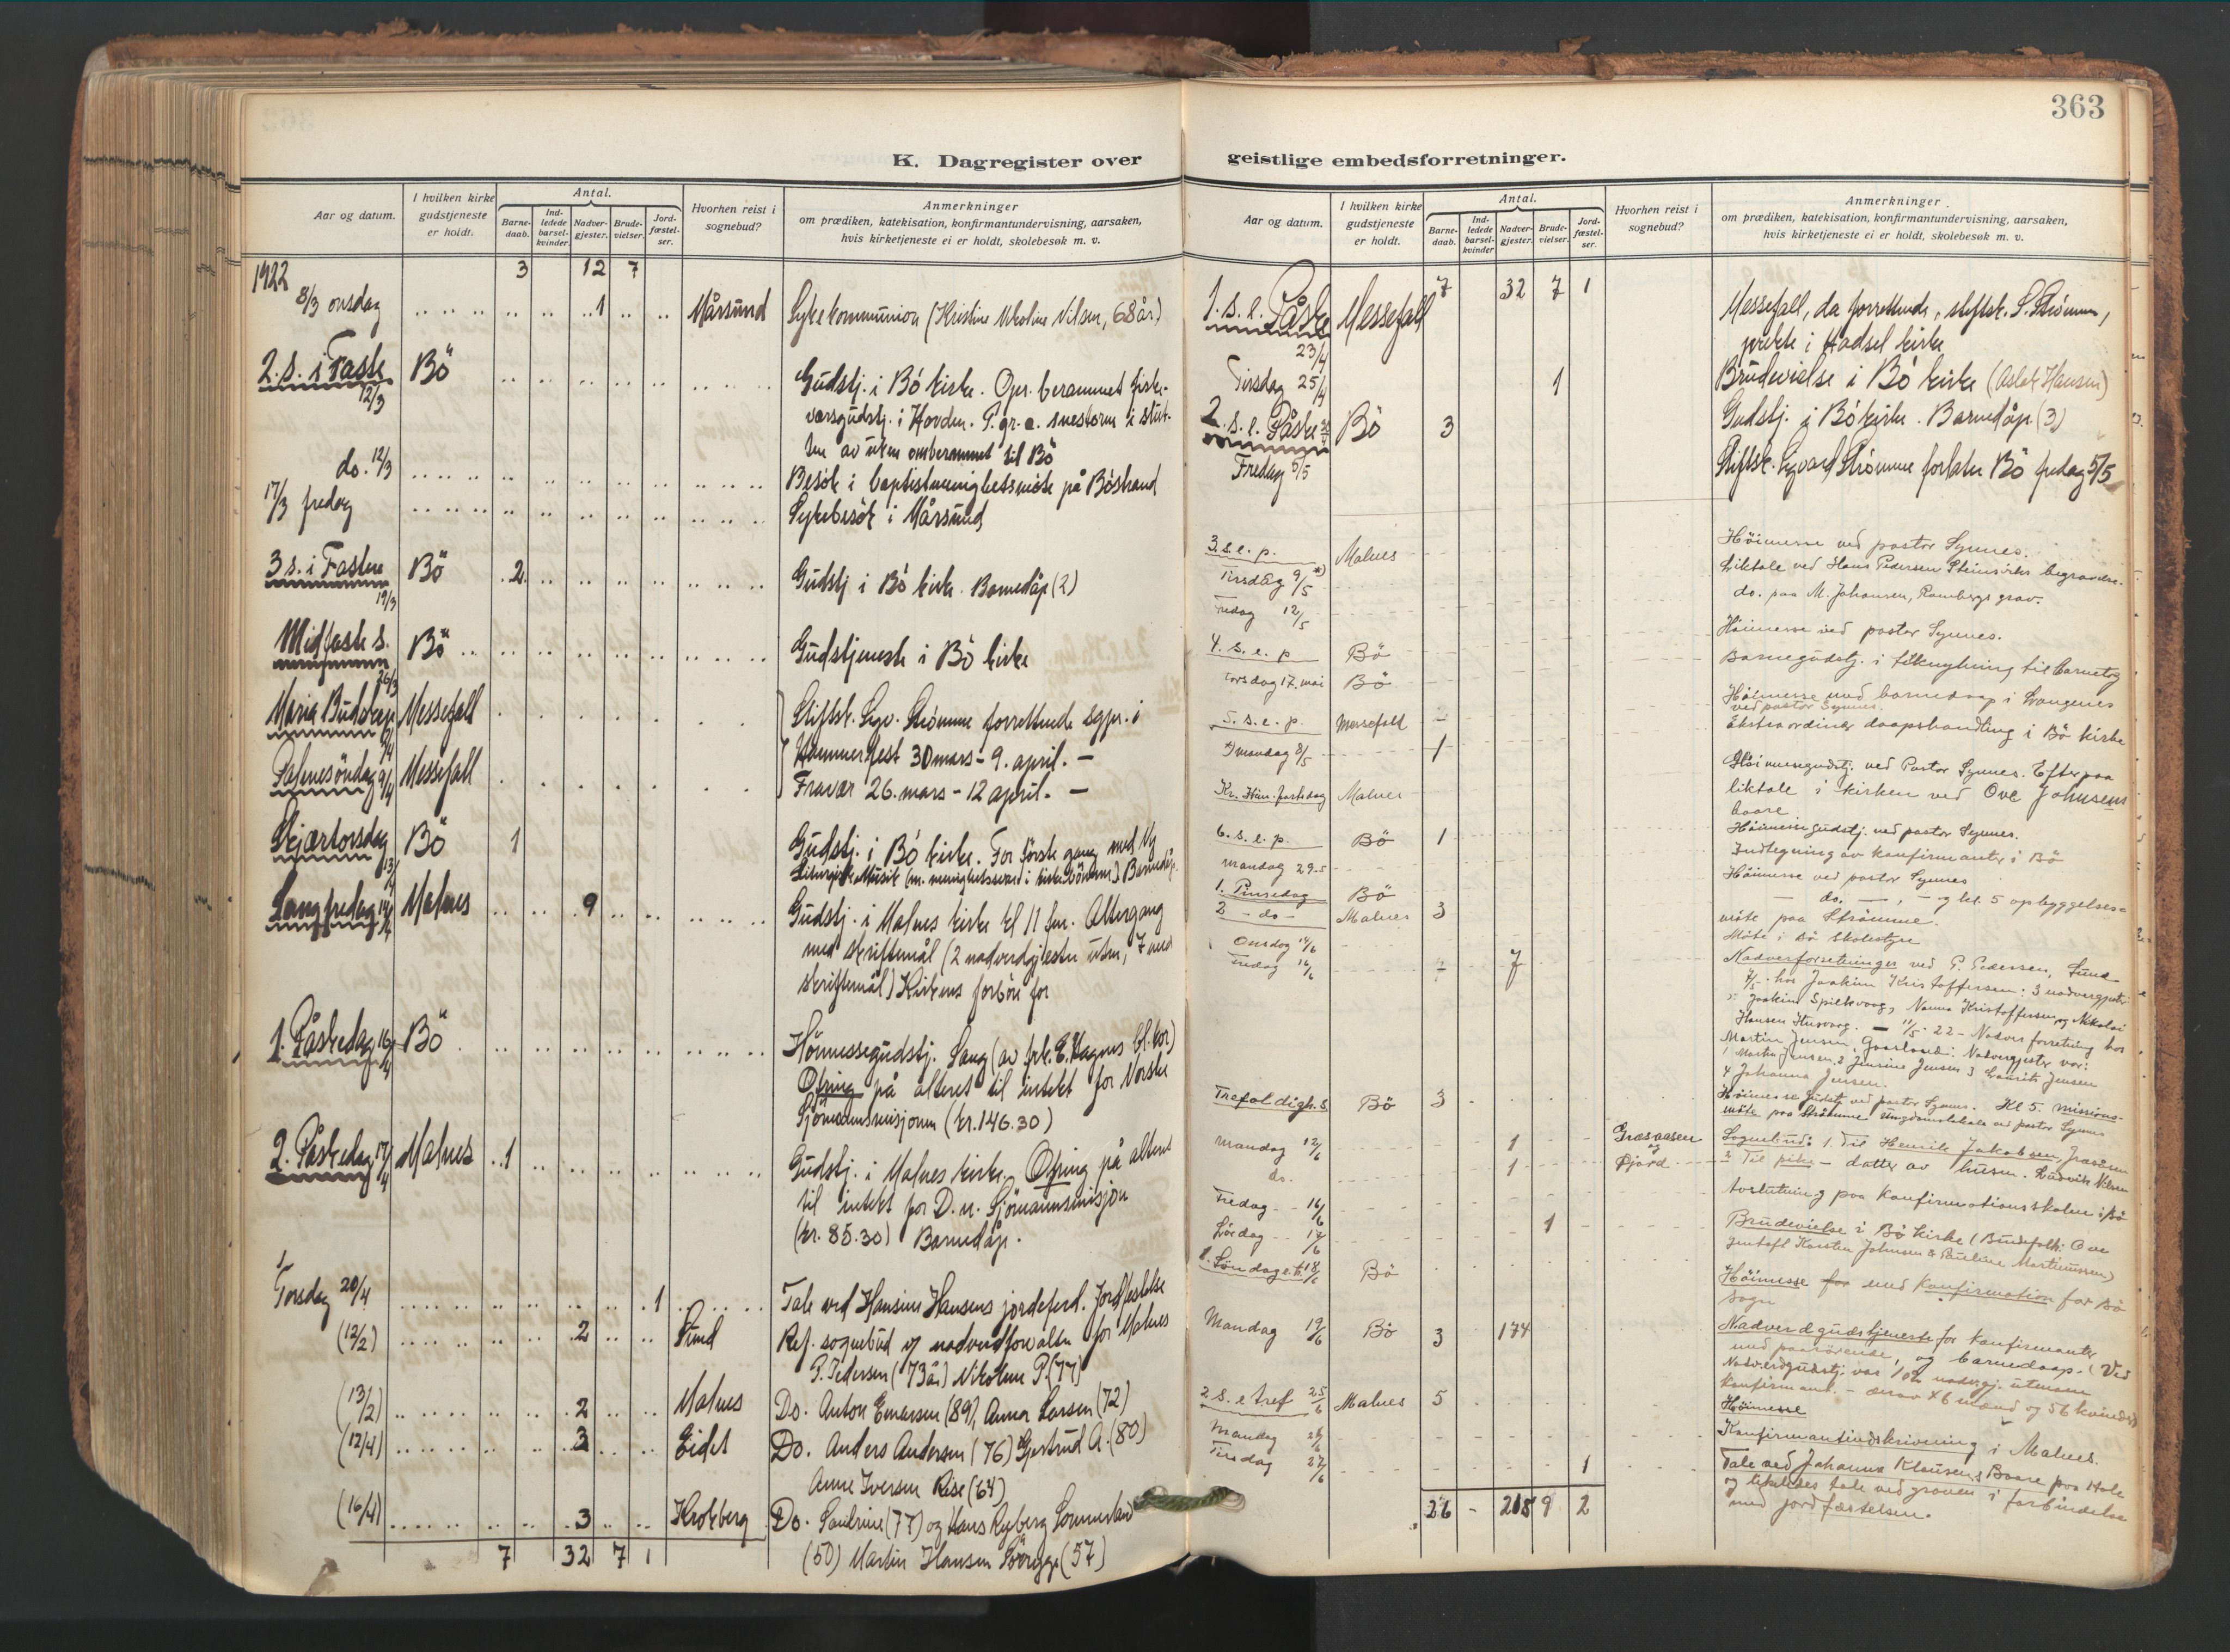 363
K. Dagregister over
geistlige embedsforretninger.
Aar og datum.
I hvilken kirke gudstjeneste er holdt.
Antal.
Barne-daab.
Ind-ledede barsel-kvinder.
Nadver-gjester.
Brude-vielser.
Jord-fæstel-ser.
Hvorhen reist i sognebud?
Anmerkninger
om prædiken, katekisation, konfirmantundervisning, aarsaken,
hvis kirketjeneste ei er holdt, skolebesøk m. v.
1922 3 12 7
8/3 onsdag 1 Mårsund Sykekommunion (Kristine Nikoline Nilsen, 68 år)
2. s. i Faste 12/3 Bö Gudstj. i Bö kirke. Opr. berammet fiske-
værsgudstj. i Hovden. P. gr. a. snestorm i
av uken omberammet til Bö
do. 12/3 Besök i baptistmenighetsmöte på Böstrand
17/3 fredag Sykebesök i Mårsund
3 s. i Fasten 19/3 Bö 2 Gudstj i Bö kirke. Barnedåp (2)
Midfaste s. 26/3 Bö Gudstjeneste i Bö kirke
Maria Budskap 2/4 Messefall Stiftsk. Sigv. Strömme forrettende sgpr. i
Palmesöndag 9/4 Messefall Hammerfest 30 mars - 9. april. -
Fravær 26. mars - 12 april. -
Skjærtorsdag 13/4 Bö 1 Gudstj. i Bö kirke. For første gang med Ny
Liturgisk Musik (m. menighetssvar i kirkebönnene) Barnedåp.
Langfredag 14/4 Malnes 9 Gudstj. i Malnes kirke kl 11 fm. Altergang
med skriftemål (2 nadverdgjester uten, 7 med
skriftemål) Kirkens forbön for
1. Påskedag 16/4 Bö Hömessegudstj. Sang (av frk. E. Hagnes bl. kor)
Ofring på alteret til intekt for Norske
Sjömannsmisjonen (kr. 146.30)
2. Påskedag 17/4 Malnes 1 Gudstj. i Malnes kirke. Ofring på alteret
til intekt for D. n. Sjömannsmisjon
(kr. 85.30) Barnedåp.
Torsdag 20/4 1 Tale ved Hansine Hansens jordeferd. Jordfestelse
(12/2) 2 Sund Ref. sognebud og nadverdforvaltn for Malnes
P. Pedersen (73 år) Nikoline P. (77)
(13/2) 2 Malnes Do. Anton Enersen (89), Anna Larsen (72)
(12/4) 3 Eidet Do. Anders Andersen (76) Gjertrud A. (80)
Anne Iversen Rise (64)
(16/4) 3 Krokberg Do. (77) og Hans Ryberg
(50) Martin Hansen (57)
7 32 7 1
7 32 7 1
1. s. e. Påske 23/4 Messefall Messefall, da forrettende, stiftsk. S. Strömme,
prekte i Hadsel kirke
Tirsdag 25/4 1 Brudevielse i Bö kirke (Aslak Hansen)
2. s. e. Påske Bö 3 Gudstj. i Bö kirke. Barnedåp (3)
Fredag 5/5 Stiftsk. Sigvard Strömme forlater Bö fredag 5/5
3. s. e. p. Malnes Höimesse ved pastor Synnes.
Tirsdag 9/5 Liktale ved Hans Pedersen Steinsviks begravelse.
Fredag 12/5 do. paa M. Johansen, Rambergs grav.
4. s. e. p Bö Höimesse ved pastor Synnes.
Torsdag 17. mai Bö Barnegudstj. i tilknytning til barnetog
5. s. e. p. Messefald Höimesse med barnedaap i Langenes
ved pastor Synnes.
mandag 8/5 1 Ekstraordinær daapshandling i Bö kirke
Kr. Him.fartsdag Malnes Höimessegudstj. ved Pastor Synnes. Efterpaa
liktale i kirken ved Ove Johnsens
baare
6. s. e. p. Bö 1 Höimessegudstj. ved pastor Synnes.
mandag 29.5 Indtegning av konfirmanter i Bö
1. Pinsedag Bö Höimesse ved pastor Synnes
2 - do - Malnes 3 - do. - , - og kl. 5 opbyggelses=
möte paa Strömme.
Onsdag 14/6 Möte i Bö skolestyre
Fredag 16/6 7 Nadverforretninger ved P. Pedersen, Sund
hos Joakim Kristoffersen: 3 nadvergjester
Joakim Spilkevaag, Nanna Kristoffersen og Nikolai
Hansen Husvaag. - 11/5.22 - Nadverforretning hos
Martin Jensen, Gaarland: Nadvergjester var:
1 Martin Jensen 2 Jensine Jensen 3 Laurits Jensen
4 Johanna Jensen.
Trefoldigh. s. Bö 3 Höimesse Gudstj ved pastor Synnes. Kl 5. missions-
möte paa Strömme ungdomslokale ved pastor Synnes
mandag 12/6 1 Græsaasen Sognebud: 1. Til Henrik Jakobsen, Græsåsen
do. 1 og Fjord 2 Til pike - datter av husm. Ludvik Nilsen
Fredag 16/6 Avslutning paa konfirmationsskolen i Bö
Lördag 17/6 1 Brudevielse i Bö kirke (Brudefolk: Ove
Gustaft Karsten Johnsen & Pauline Martinussen)
1. Søndag e. tr. 18/6 Bö Höimesse for med konfirmation for Bö
sogn
Mandag 19/6 Bö 3 174 Nadverdgudstjeneste for konfirmanter
med paarörende, og barnedaap. (Ved
Nadverdgudstj. var 102 nadvgj. utenom
konfirmant. - derav 46 mænd og 56 kvinder)
2. s. e tref 25/6 Malnes 5 Höimesse
Mandag 26/6 Konfirmantindskrivning i Malnes.
Tirsdag 27/6 1 Tale ved Johanna Klausens Baare paa Hole
og likeledes tale ved graven i forbindelse
med jordfæstelsen.
26 - 215 9 2